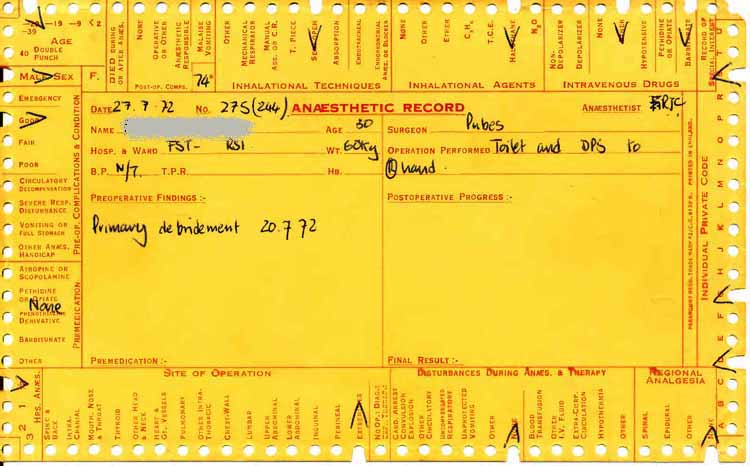 -39
-19
-9
<2
AGE
40 DOUBLE PUNCH
MALE SEX F.
DIED DURING OR AFTER ANÆS.
NONE
OPERATIVE OR OTHER
ANÆSTHETIC RESPONSIBLE
MALAISE VOMITING
OTHER
POST-OP. COMPS.
74"
MECHANICAL RESPIRATOR
MANUAL ASS. OR C.R.
T. PIECE
ABSORPTION
ENDOTRACHEAL
ENDOBRONCHIAL ANÆS. OR BLOCKER
INHALATIONAL TECHNIQUES
NONE
OTHER
ETHER
T.C.E.
N₂O
INHALATIONAL AGENTS
NON-DEPOLARIZER
DEPOLARIZER
NONE
HYPOTENSIVE
PETHIDINE OR OPIATE
INTRAVENOUS DRUGS
RECORD OF SPECIAL INTEREST
EMERGENCY
GOOD
FAIR
POOR
CIRCULATORY DECOMPENSATION
SEVERE RESP. DISTURBANCE
VOMITING OR FULL STOMACH
OTHER ANÆS. HANDICAP
PRE-OP. COMPLICATIONS & CONDITION
ATROPINE OR SCOPOLAMINE
PETHIDINE OR OPIATE
None
PHENOTHIAZINE DERIVATIVE
BARBITURATE
OTHER
PREMEDICATION
DATE 27.7.72 NO. 275(244) ANÆSTHETIC RECORD ANÆSTHETIST
NAME AGE 30 SURGEON Pubes
HOSP. & WARD FST- RSI WT. 60Kg OPERATION PERFORMED Toilet and DPS to
B.P. N/T. T.P.R. HB. (R) hand.
PREOPERATIVE FINDINGS :- POSTOPERATIVE PROGRESS :-
Primary debridement 20.7.72
PREMEDICATION :- FINAL RESULT :-
INDIVIDUAL PRIVATE CODE
A B C D E F G H J K L M N O P R S T U
3 2 1
HRS. ANÆS.
SITE OF OPERATION
SPINE & BACK
INTRA-CRANIAL
MOUTH, NOSE & THROAT
THYROID
OTHER HEAD & NECK
HEART & GT. VESSELS
PULMONARY
OTHER INTRA-THORACIC
CHEST-WALL
LUMBAR
UPPER ABDOMINAL
LOWER ABDOMINAL
INGUINAL
PERINEAL
EXTREMITIES
DISTURBANCES DURING ANÆS. & THERAPY
CARD. ARREST CONVULSION EXPLOSION
OTHER CIRCULATORY
UNINTERRUPTED RESPIRATORY
UNPROTECTED VOMITING
OTHER
NONE
BLOOD TRANSFUSION
OTHER I.V. FLUID
EXTRA-CORP. CIRCULATION
HYPOTHERMIA
OTHER
REGIONAL ANALGESIA
SPINAL
EPIDURAL
OTHER
NONE